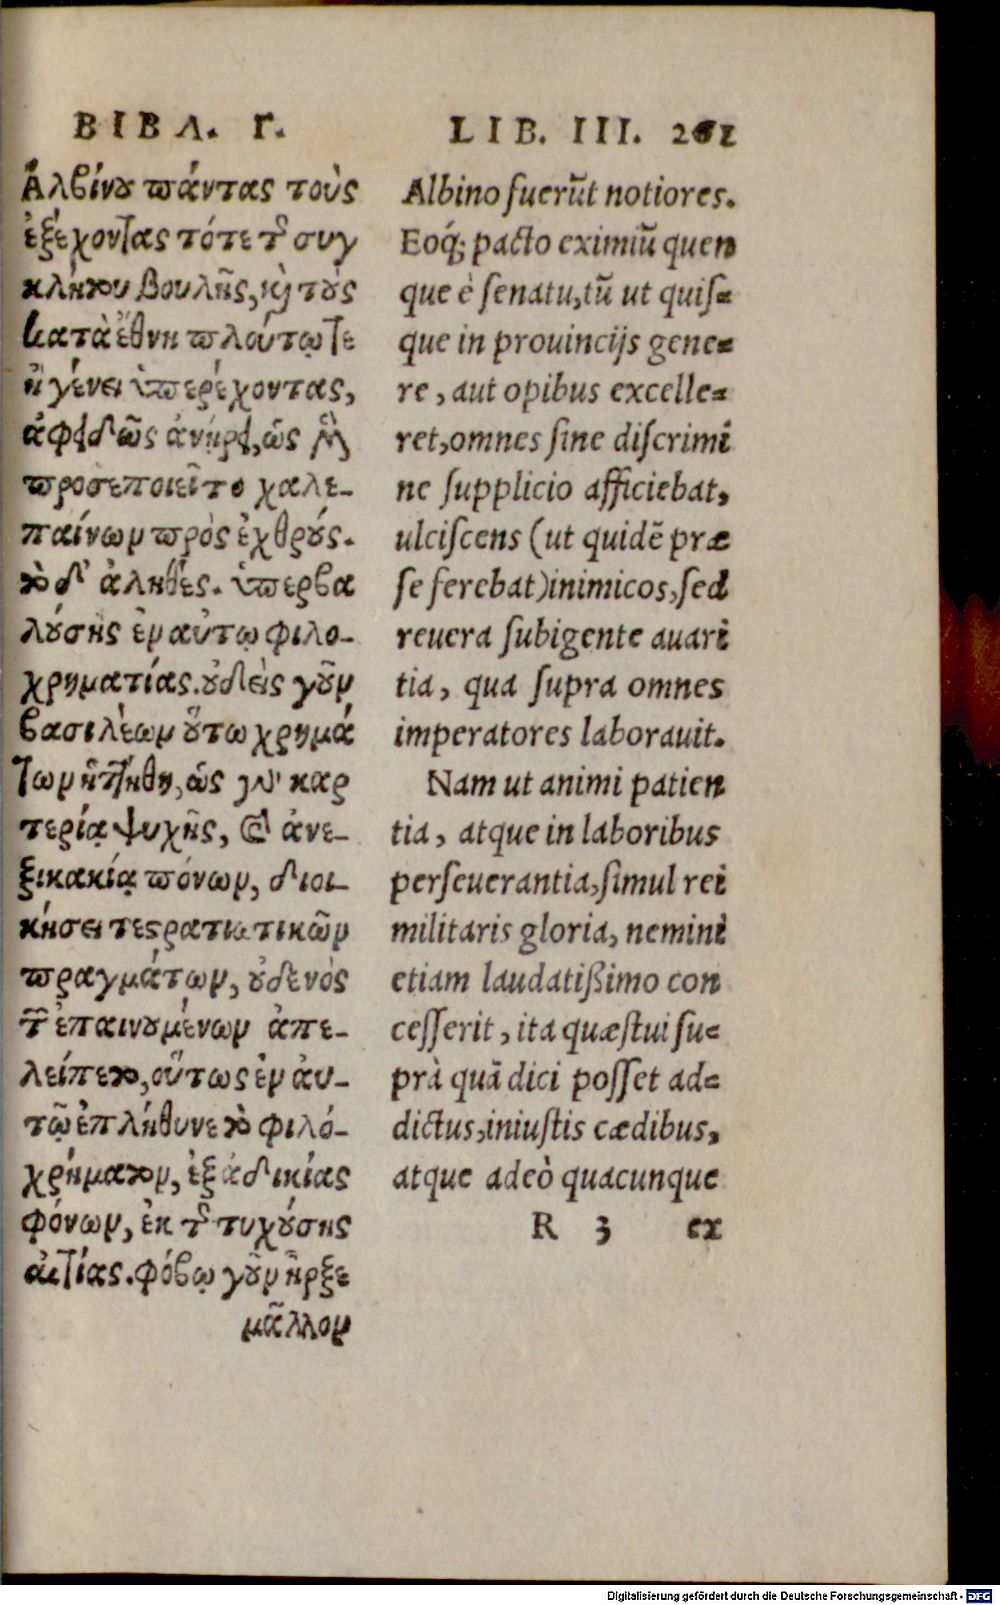 ΒΙΒΛ. Γ.
Ἀλβίνου πάντας τοὺς
ἐξέχοντας τότε τῆς συγ
κλήτου βουλῆς, καὶ τοὺς
κατὰ ἔθνη πλούτῳ τε
ἢ γένει ὑπερέχοντας,
ἀφειδῶς ἀνῄρει, ὡς μὲν
προσεποιεῖτο χαλε-
παίνων πρὸς ἐχθρούς.
τὸ δ' ἀληθὲς. ὑπερβα
λούσης ἐν αὐτῷ φιλο-
χρηματίας. οὐδεὶς γοῦν
βασιλέων οὕτω χρημά
των ἡττήθη, ὡς γὰρ καρ
τερίᾳ ψυχῆς, καὶ ἀνε-
ξικακίᾳ πόνων, διοι-
κήσει τε στρατιωτικῶν
πραγμάτων, οὐδενὸς
τῶν ἐπαινουμένων ἀπε-
λείπετο, οὕτως ἐν αὐ-
τῷ ἐπλήθυνε τὸ φιλό-
χρήματον, ἐξ ἀδικίας
φόνων, ἐκ τῆς τυχούσης
αἰτίας. φόβῳ γοῦν ἦρξε
μᾶλλον
LIB. III. 261
Albino fuerūt notiores.
Eoq́; pacto eximiū quen
que è senatu, tū ut quis-
que in prouincijs gene-
re, aut opibus excelle-
ret, omnes sine discrimi
ne supplicio afficiebat,
ulciscens (ut quidē præ
se ferebat) inimicos, sed
reuera subigente auari
tia, qua supra omnes
imperatores laborauit.
Nam ut animi patien
tia, atque in laboribus
perseuerantia, simul rei
militaris gloria, nemini
etiam laudatißimo con
cesserit, ita quæstui su-
prà quā dici posset ad-
dictus, iniustis cædibus,
atque adeò quacunque
R 3 ex
Digitalisierung gefördert durch die Deutsche Forschungsgemeinschaft - DFG